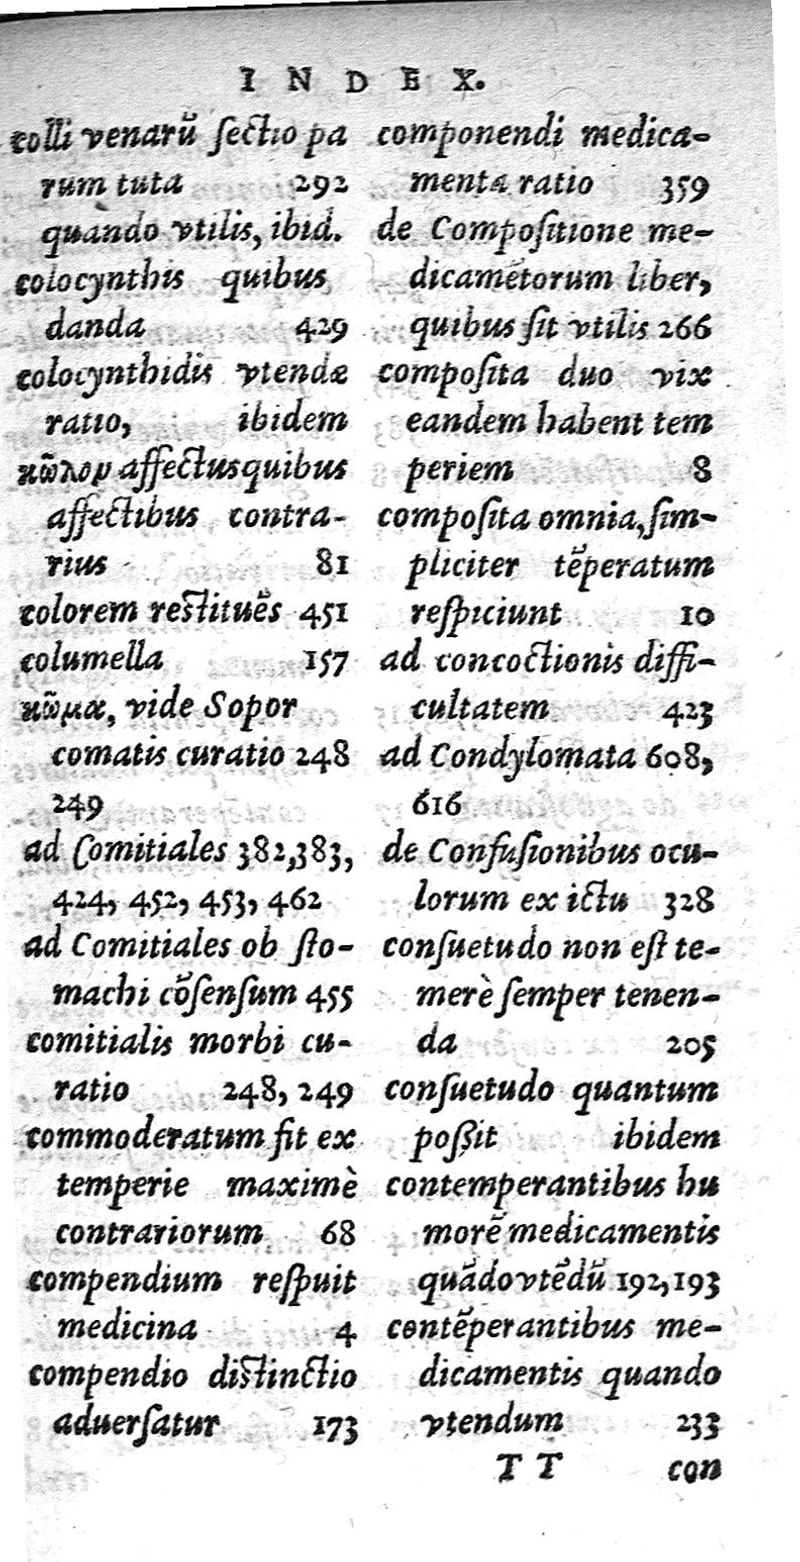 INDEX.
colli venarũ ſectio pa
rum tuta 292
quando vtilis, ibid.
colocynthis quibus
danda 429
colocynthidis vtendæ
ratio, ibidem
κῶλον affectus quibus
affectibus contra-
rius 81
colorem reſtituẽs 451
columella 157
κῶμα, vide Sopor
comatis curatio 248
249
ad Comitiales 382,383,
424, 452, 453, 462
ad Comitiales ob ſto-
machi cõſenſum 455
comitialis morbi cu-
ratio 248, 249
commoderatum fit ex
temperie maximè
contrariorum 68
compendium reſpuit
medicina 4
compendio diſtinctio
aduerſatur 173
componendi medica-
menta ratio 359
de Compoſitione me-
dicamẽtorum liber,
quibus ſit vtilis 266
compoſita duo vix
eandem habent tem
periem 8
compoſita omnia, ſim-
pliciter tẽperatum
reſpiciunt 10
ad concoctionis diffi-
cultatem 423
ad Condylomata 608,
616
de Confuſionibus ocu-
lorum ex ictu 328
conſuetudo non eſt te-
merè ſemper tenen-
da 205
conſuetudo quantum
poſſit ibidem
contemperantibus hu
morẽ medicamentis
quãdo vtẽdũ 192,193
contẽperantibus me-
dicamentis quando
vtendum 233
TT con